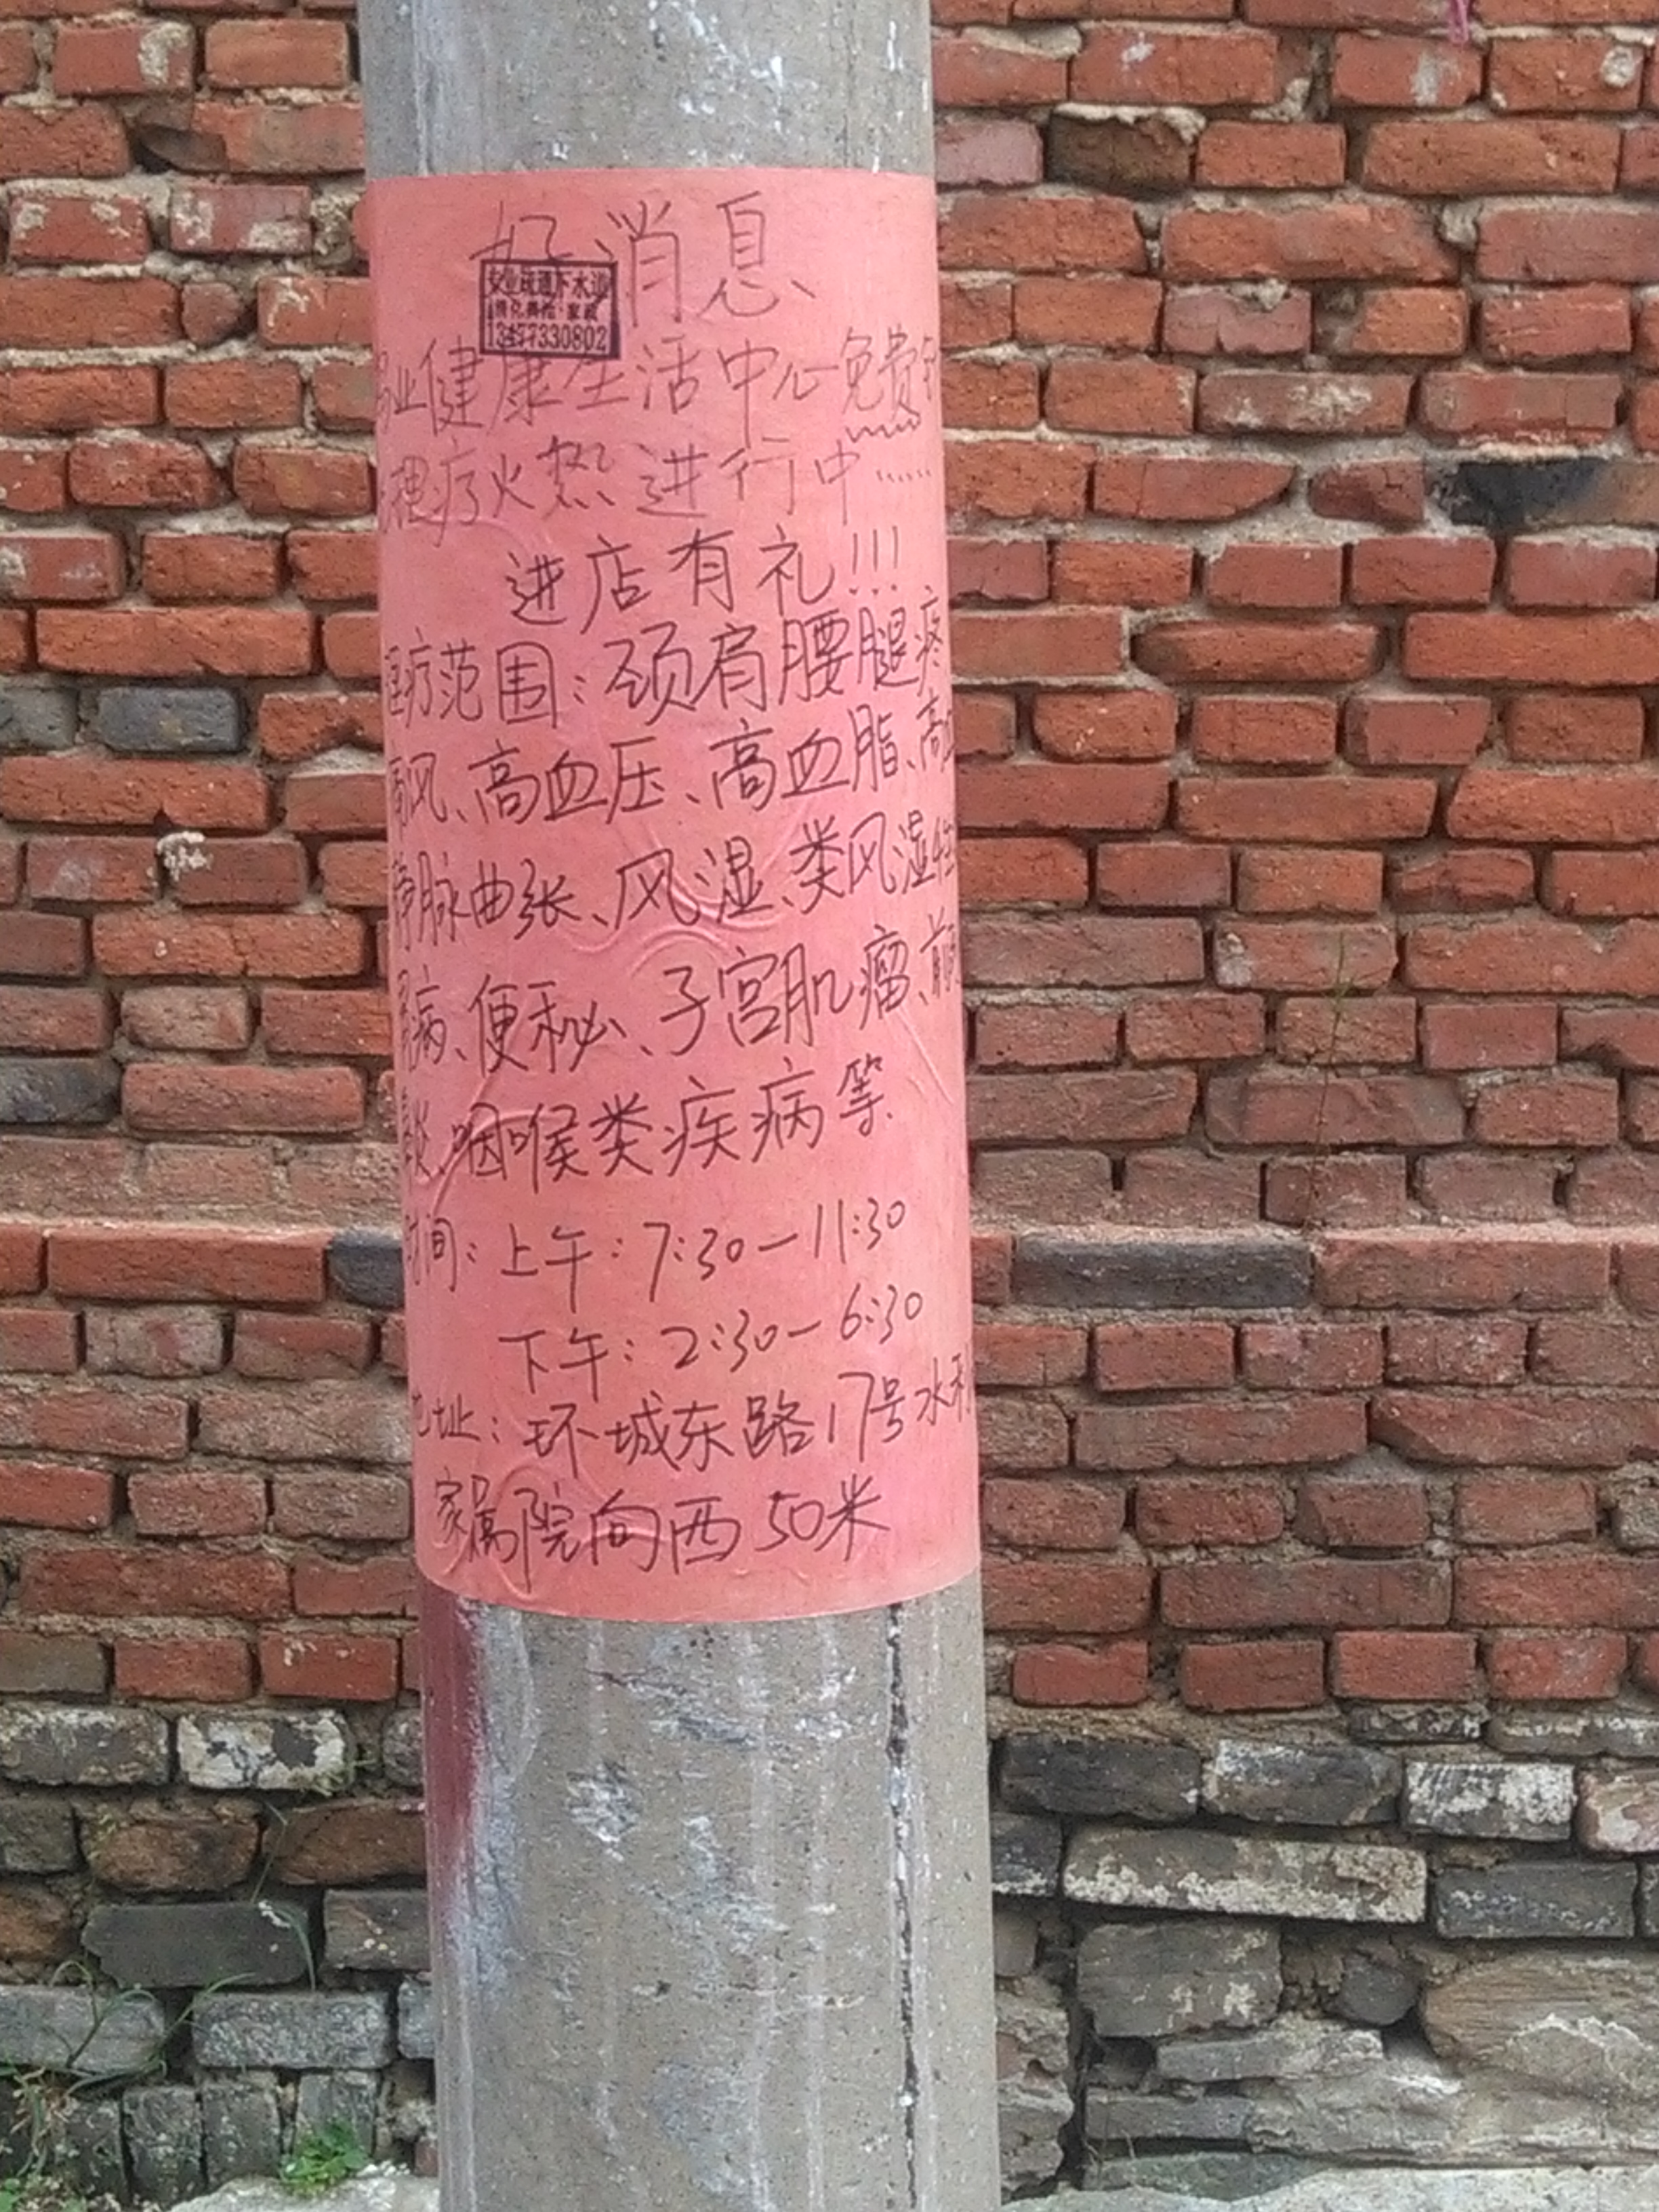 好消息
专业疏通下水道
13457330802
业健康生活中心免费
理疗火热进行中……
进店有礼!!!
理疗范围:颈肩腰腿疼
痛风、高血压、高血脂、高
静脉曲张、风湿、类风湿
病、便秘、子宫肌瘤、前
炎、咽喉类疾病等
时间:上午:7:30—11:30
下午:2:30—6:30
地址:环城东路17号水利
家属院向西50米